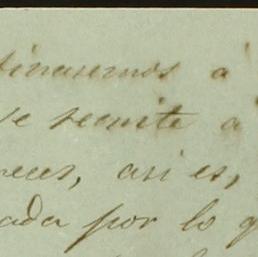 tinaremos á
se remite á
reces, asi es,
ada por lo q